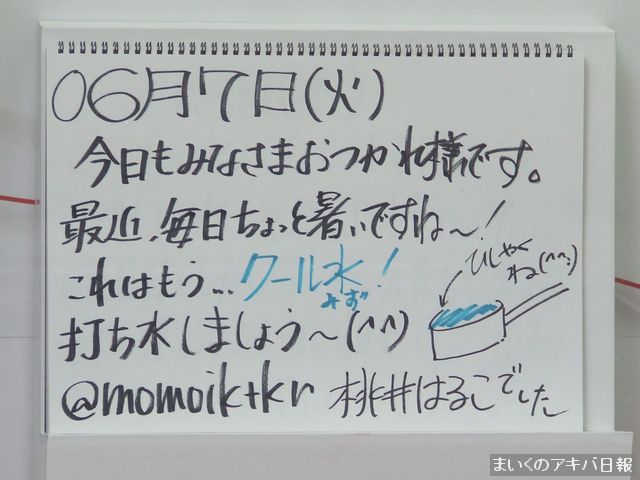 06月7日(火)
今日もみなさまおつかれ様です。
最近、毎日ちょっと暑いですね〜!
これはもう…クール水!
みず
ひしゃく
ね(^^;)
打ち水しましょう〜(^^)
@momoiktkr 桃井はるこでした
まいくのアキバ日報